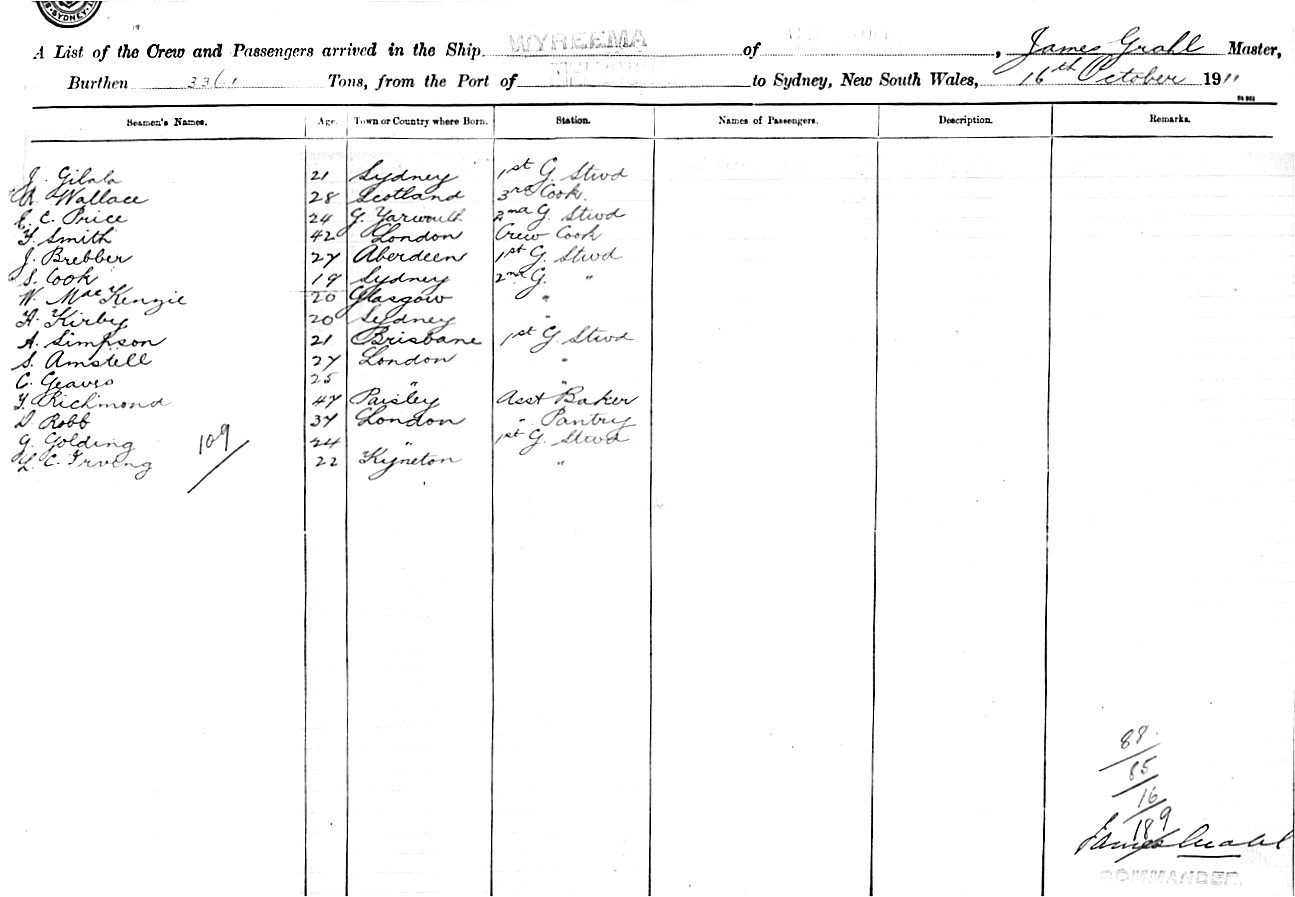 SYDNEY
A List of the Crew and Passengers arrived in the Ship WYREEMA of , James Grahl Master,
Burthen 3361 Tons, from the Port of to Sydney, New South Wales, 16th October 1911
Seamen's Names. Age. Town or Country where Born. Station. Names of Passengers. Description. Remarks.
J. 21 Sydney 1st G. Stwd
Wallace 28 Scotland 3rd Cook.
E. C. Price 24 G. Yarmouth 2nd G. Stwd
Smith 42 London Crew Cook
J. Brebber 27 Aberdeen 1st G. Stwd
S. Cook 19 Sydney 2nd G. "
W. MacKenzie 20 Glasgow "
H. Kirby 20 Sydney "
A. Simpson 21 Brisbane 1st G. Stwd
S. Amstell 27 London "
C. Geaves 25 " "
Richmond 47 Paisley Asst Baker
D. Robb 37 London " Pantry
G. Golding 24 " 1st G. Stwd
L. C. Irving 22 Kyneton "
109/
88.
85
16
189
James Grahl
COMMANDER.